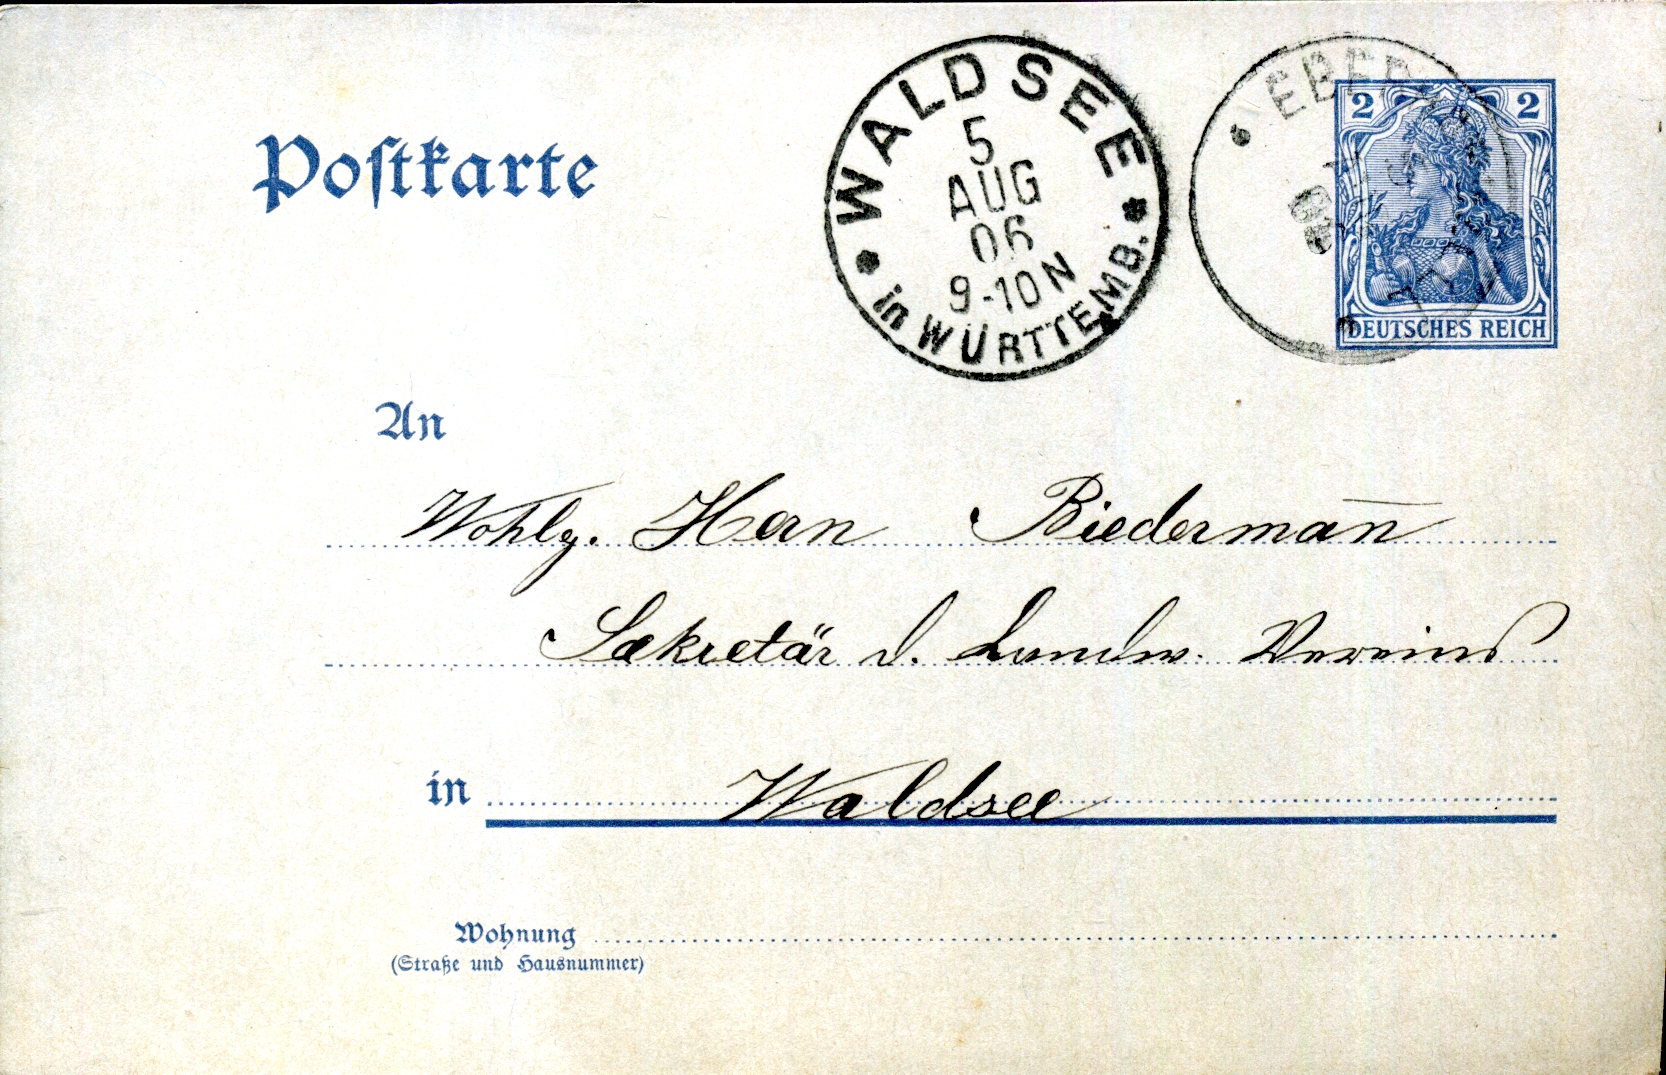 Postkarte
WALDSEE
5
AUG
06
9-10 N
in WÜRTTEMB.
EBER
2 2
DEUTSCHES REICH
An
Wohlg. Herrn Biedermañ
Sekretär d. Landw. Vereins
in Waldsee
Wohnung
(Straße und Hausnummer)